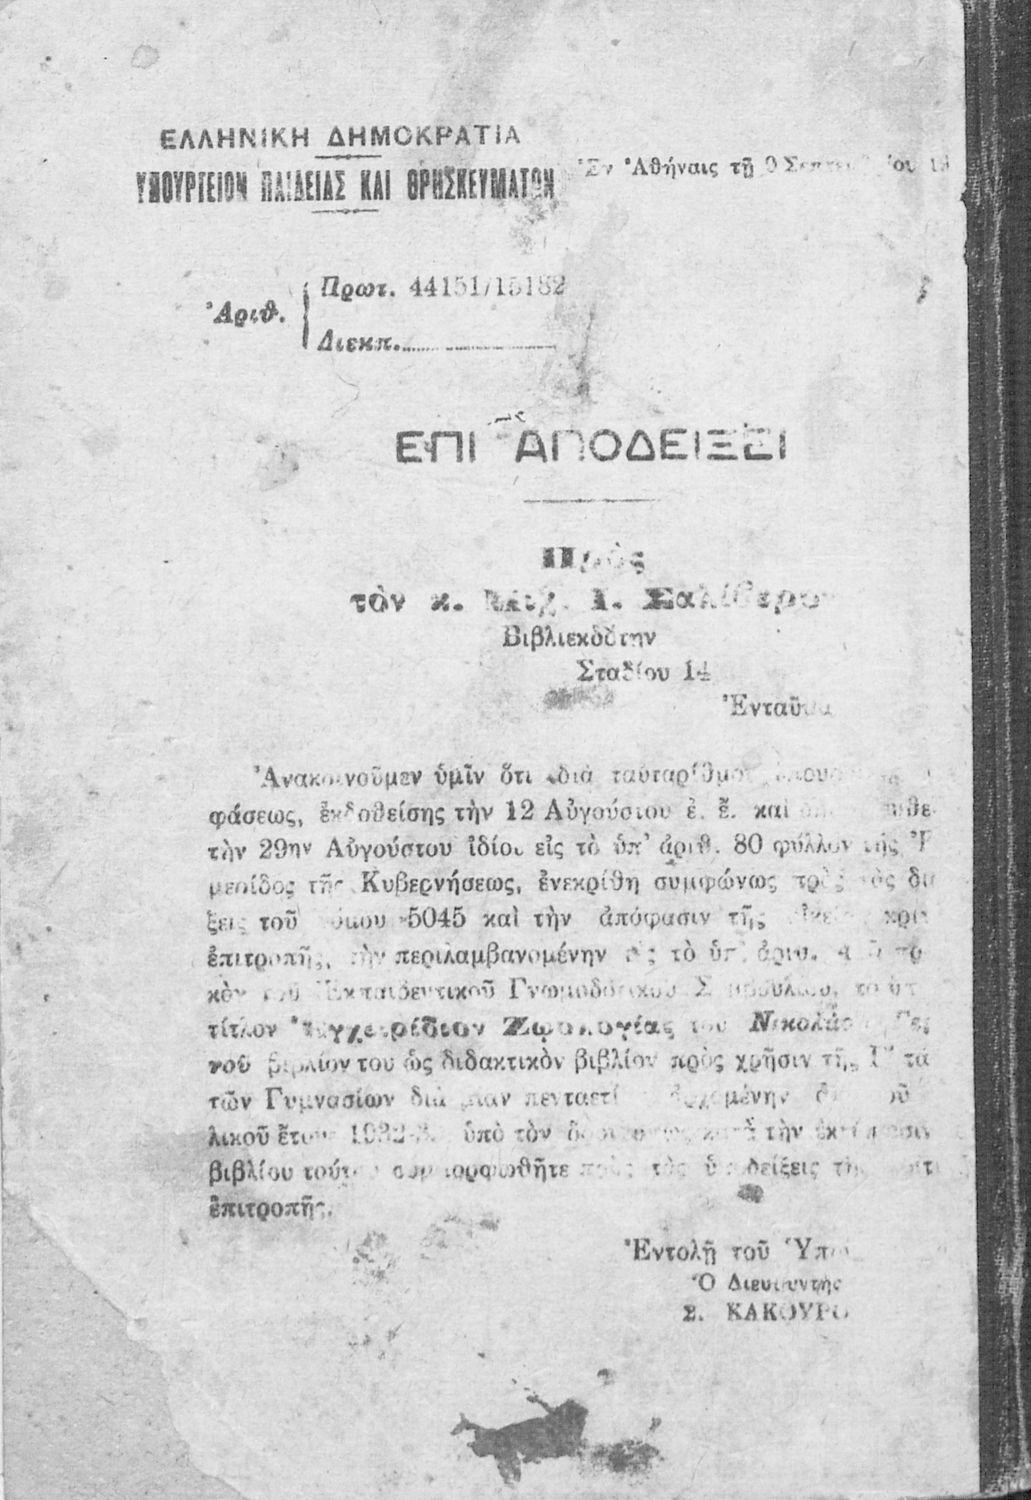 ΕΛΛΗΝΙΚΗ ΔΗΜΟΚΡΑΤΙΑ
ΥΠΟΥΡΓΕΙΟΝ ΠΑΙΔΕΙΑΣ ΚΑΙ ΘΡΗΣΚΕΥΜΑΤΩΝ
Ἐν Ἀθήναις τῇ 9
Ἀριθ.
Πρωτ. 44151/15182
Διεκπ.
ΕΠΙ ΑΠΟΔΕΙΞΕΙ
Πρὸς
τὸν κ. Μιχ. Ι. Σαλίβερον
Βιβλιεκδότην
Σταδίου 14
Ἐνταῦθα
Ἀνακοινοῦμεν ὑμῖν ὅτι διὰ ταὐταρίθμου
φάσεως, ἐκδοθείσης τὴν 12 Αὐγούστου ἐ. ἔ. καὶ
τὴν 29ην Αὐγούστου ἰδίου εἰς τὸ ὑπ' ἀριθ. 80 φύλλον τῆς
μερίδος τῆς Κυβερνήσεως, ἐνεκρίθη συμφώνως πρὸς τὰς
ξεις τοῦ νόμου 5045 καὶ τὴν ἀπόφασιν τῆς
ἐπιτροπῆς, τὴν περιλαμβανομένην εἰς τὸ ὑπ' ἀριθ.
κὸν τοῦ Ἐκπαιδευτικοῦ Γνωμοδοτικοῦ Συμβουλίου, τὸ
τίτλον Ἐγχειρίδιον Ζῳολογίας τοῦ Νικολάου
νοῦ βιβλίον του ὡς διδακτικὸν βιβλίον πρὸς χρῆσιν τῆς Γ'
τῶν Γυμνασίων διὰ μίαν πενταετίαν ἀρχομένην
λικοῦ ἔτους ὑπὸ τὸν ὅρον κατὰ τὴν ἐκτύπωσιν
βιβλίου τούτου συμμορφωθῆτε πρὸς τὰς ὑποδείξεις τῆς
ἐπιτροπῆς.
Ἐντολῇ τοῦ
Ὁ Διευθυντὴς
Σ. ΚΑΚΟΥΡΟ